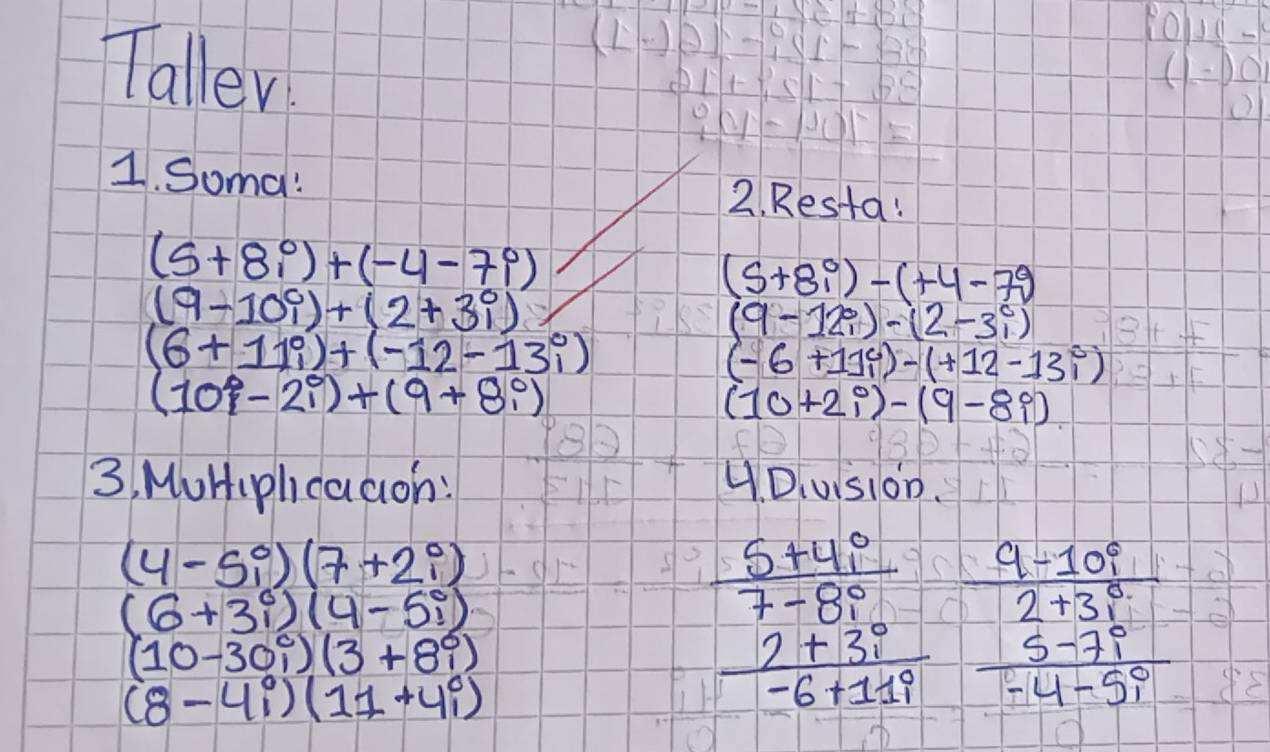 Taller.
1. Suma:
(5+8i)+(-4-7i)
(9-10i)+(2+3i)
(6+11i)+(-12-13i)
(10i-2i)+(9+8i)
2. Resta:
(5+8i)-(+4-7i)
(9-12i)-(2-3i)
(-6+11i)-(+12-13i)
(10+2i)-(9-8i)
3. Multiplicación:
(4-5i)(7+2i)
(6+3i)(4-5i)
(10-30i)(3+8i)
(8-4i)(11+4i)
4. División.
5+4i 9-10i
7-8i 2+3i
2+3i 5-7i
-6+11i -4-5i